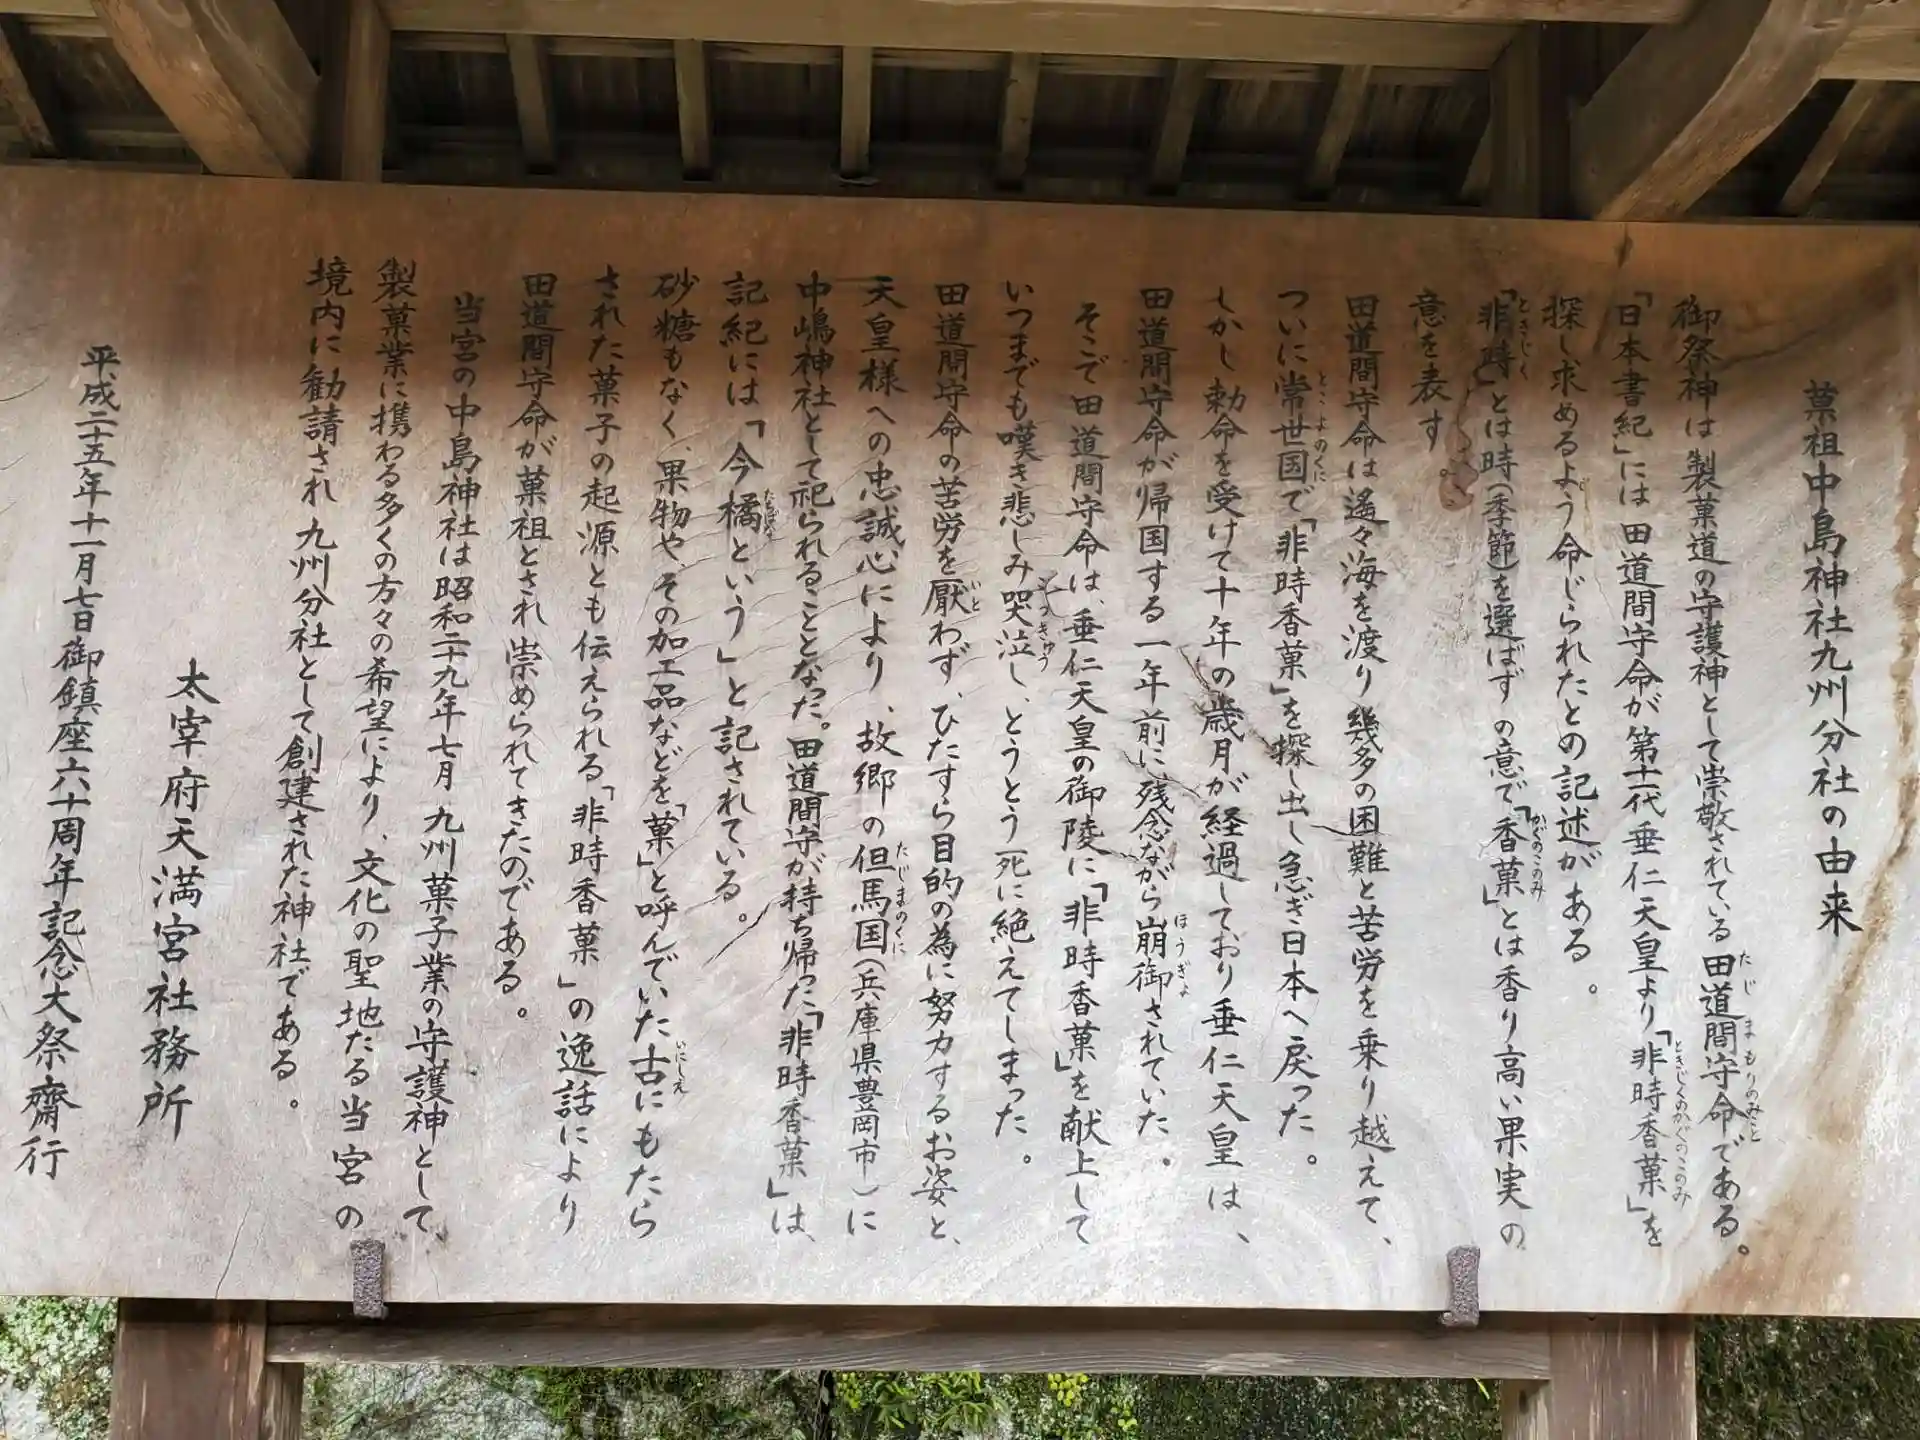 菓祖中島神社九州分社の由来
御祭神は製菓道の守護神として崇敬されている田道間守命である。
「日本書紀」には田道間守命が第十一代垂仁天皇より「非時香菓」を
探し求めるよう命じられたとの記述がある。
「非時」とは時(季節を選ばず)の意で「香菓」とは香り高い果実の
意を表す。
田道間守命は遙々海を渡り幾多の困難と苦労を乗り越えて、
ついに常世国で「非時香菓」を探し出し急ぎ日本へ戻った。
しかし勅命を受けて十年の歳月が経過しており垂仁天皇は、
田道間守命が帰国する一年前に残念ながら崩御されていた。
そこで田道間守命は、垂仁天皇の御陵に「非時香菓」を献上して
いつまでも嘆き悲しみ哭泣し、とうとう死に絶えてしまった。
田道間守命の苦労を厭わず、ひたすら目的の為に努力するお姿と、
天皇様への忠誠心により、故郷の但馬国(兵庫県豊岡市)に
中嶋神社として祀られることとなった。田道間守が持ち帰った「非時香菓」は、
記紀には「今橘という」と記されている。
砂糖もなく、果物や、その加工品などを「菓」と呼んでいた古にもたら
された菓子の起源とも伝えられる「非時香菓」の逸話により
田道間守命が菓祖とされ崇められてきたのである。
当宮の中島神社は昭和二十九年七月 九州菓子業の守護神として、
製菓業に携わる多くの方々の希望により、文化の聖地たる当宮の
境内に勧請され 九州分社として創建された神社である。
太宰府天満宮社務所
平成二十五年十一月七日御鎮座六十周年記念大祭齋行